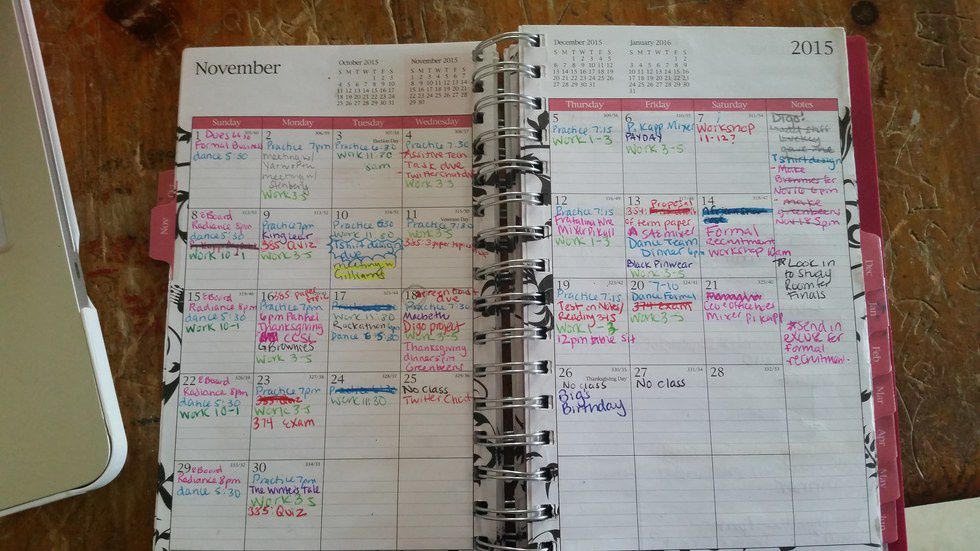 November
October 2015
S M T W T F S
1 2 3
4 5 6 7 8 9 10
11 12 13 14 15 16 17
18 19 20 21 22 23 24
25 26 27 28 29 30 31
November 2015
S M T W T F S
1 2 3 4 5 6 7
8 9 10 11 12 13 14
15 16 17 18 19 20 21
22 23 24 25 26 27 28
29 30
December 2015
S M T W T F S
1 2 3 4 5
6 7 8 9 10 11 12
13 14 15 16 17 18 19
20 21 22 23 24 25 26
27 28 29 30 31
January 2016
S M T W T F S
1 2
3 4 5 6 7 8 9
10 11 12 13 14 15 16
17 18 19 20 21 22 23
24 25 26 27 28 29 30
31
2015
Sunday Monday Tuesday Wednesday
Thursday Friday Saturday Notes
1 Dues
Formal Business
dance 5:30
2
Practice 7pm
meeting w/
meeting w/
Work 3-5
3
Election Day
Practice 6:30
Work 11:30
4
Practice 7:30
Task due
Twitter Chat
Work 3-5
5
Practice 7:15
Work 1-3
6
P. Kapp Mixer
PAYDAY
Work 3-5
7
Workshop
11-12?
Digo!
Tshirt design
- Make
Brownies for
Nov 16 6pm
- make
greenbeens
Nov 18 5pm
* Look in
to Study
Room for
Finals
* Send in
excuse for
formal
recruitment.
8 EBoard
Radiance 8pm
dance 5:30
Work 10-1
9
Practice 7pm
King Lear
335 Quiz
Work 3-5
10
Practice 6:30
Work 11:30
Tshirt design
due
meeting w/
Gilliams
11
Veterans Day
Practice 7:30
Work 3-5
335-3 paper topics
12
Practice 7:15
Mixer Pikapp
Work 1-3
13 Proposal
of term paper
Mixer
Dance Team
Dinner 6pm
Black Pinwear
Work 3-5
14
Formal
Recruitment
workshop 10am
15 EBoard
Radiance 8pm
dance 5:30
Work 10-1
16 335 paper
Practice 7pm
6pm Panhel
Thanksgiving
CCSL
Brownies
Work 3-5
17
Work 11:30
Rockathon
Dance 5:30
18
due
Practice 7:30
Macbeth
Digo project
Work 3-5
Thanksgiving
dinner 5pm
Greenbeens
19
Practice 7:15
Test on Notes/
Reading 345
Work 1-3
12pm table sit
20 7-10
Dance Formal
374 Exam
Work 3-5
21
Mixer pi kapp
22 EBoard
Radiance 8pm
dance 5:30
Work 10-1
23
Practice 7pm
335 Quiz
Work 3-5
374 exam
24
Work 11:30
25
No class
Twitter Chat
26
Thanksgiving Day
No class
Bigs
Birthday
27
No class
28
29 EBoard
Radiance 8pm
dance 5:30
30
Practice 7pm
The Winter's Tale
Work 3-5
335 Quiz
Nov
Dec
Jan
Feb
Mar
Apr
May
Jun